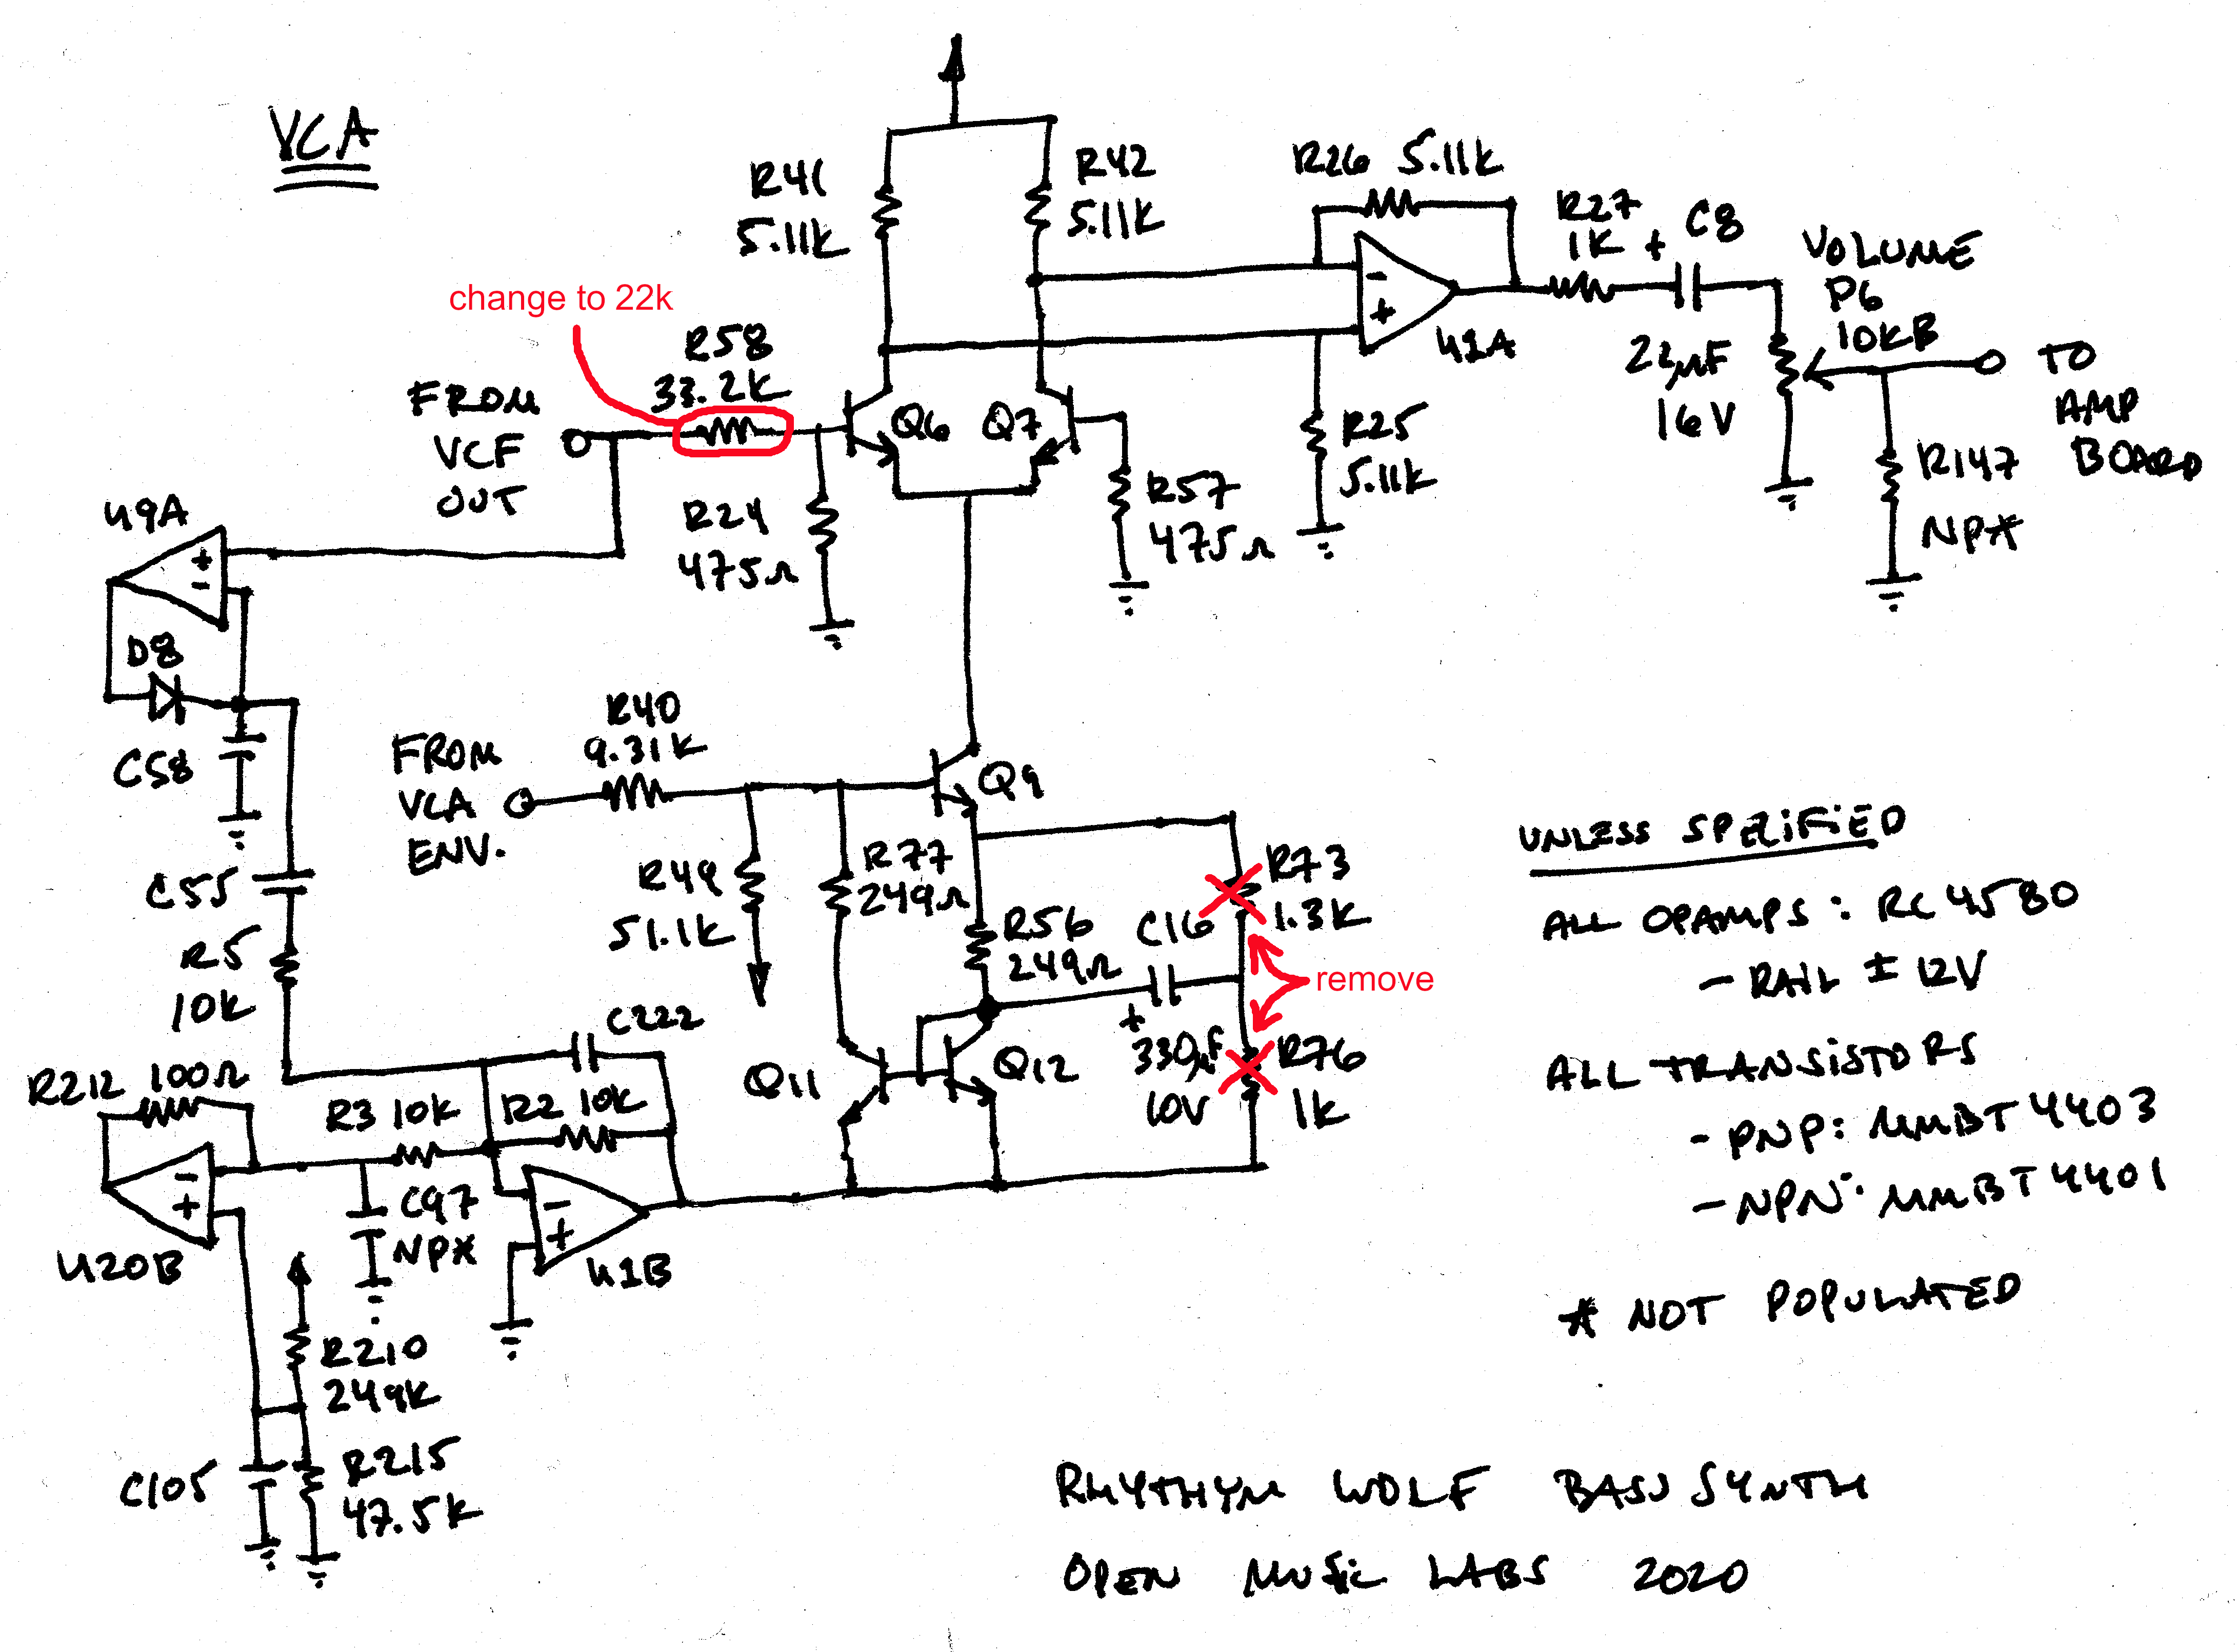 VCA
R41
5.11K
R42
5.11K
R26 5.11K
R27
1K
+
C8
22µF
16V
VOLUME
P6
10KB
TO
AMP
BOARD
R147
NP*
change to 22k
R58
33.2K
FROM
VCF
OUT
Q6
Q7
-
+
U1A
R25
5.11K
R24
475Ω
R57
475Ω
U9A
+
-
D8
C58
FROM
VCA
ENV.
R40
9.31K
Q9
R49
51.1K
R77
249Ω
R56
249Ω
C16
+
330µF
10V
R73
1.3K
remove
R76
1K
C55
R5
10K
C222
Q11
Q12
R212 100Ω
R3 10K
R2 10K
-
+
U20B
C97
NP*
-
+
U1B
R210
249K
C105
R215
47.5K
UNLESS SPEZIFIED
ALL OPAMPS: RC4580
- RAIL ± 12V
ALL TRANSISTORS
- PNP: MMBT4403
- NPN: MMBT4401
* NOT POPULATED
RHYTHYM WOLF BASS SYNTH
OPEN MUSIC LABS 2020